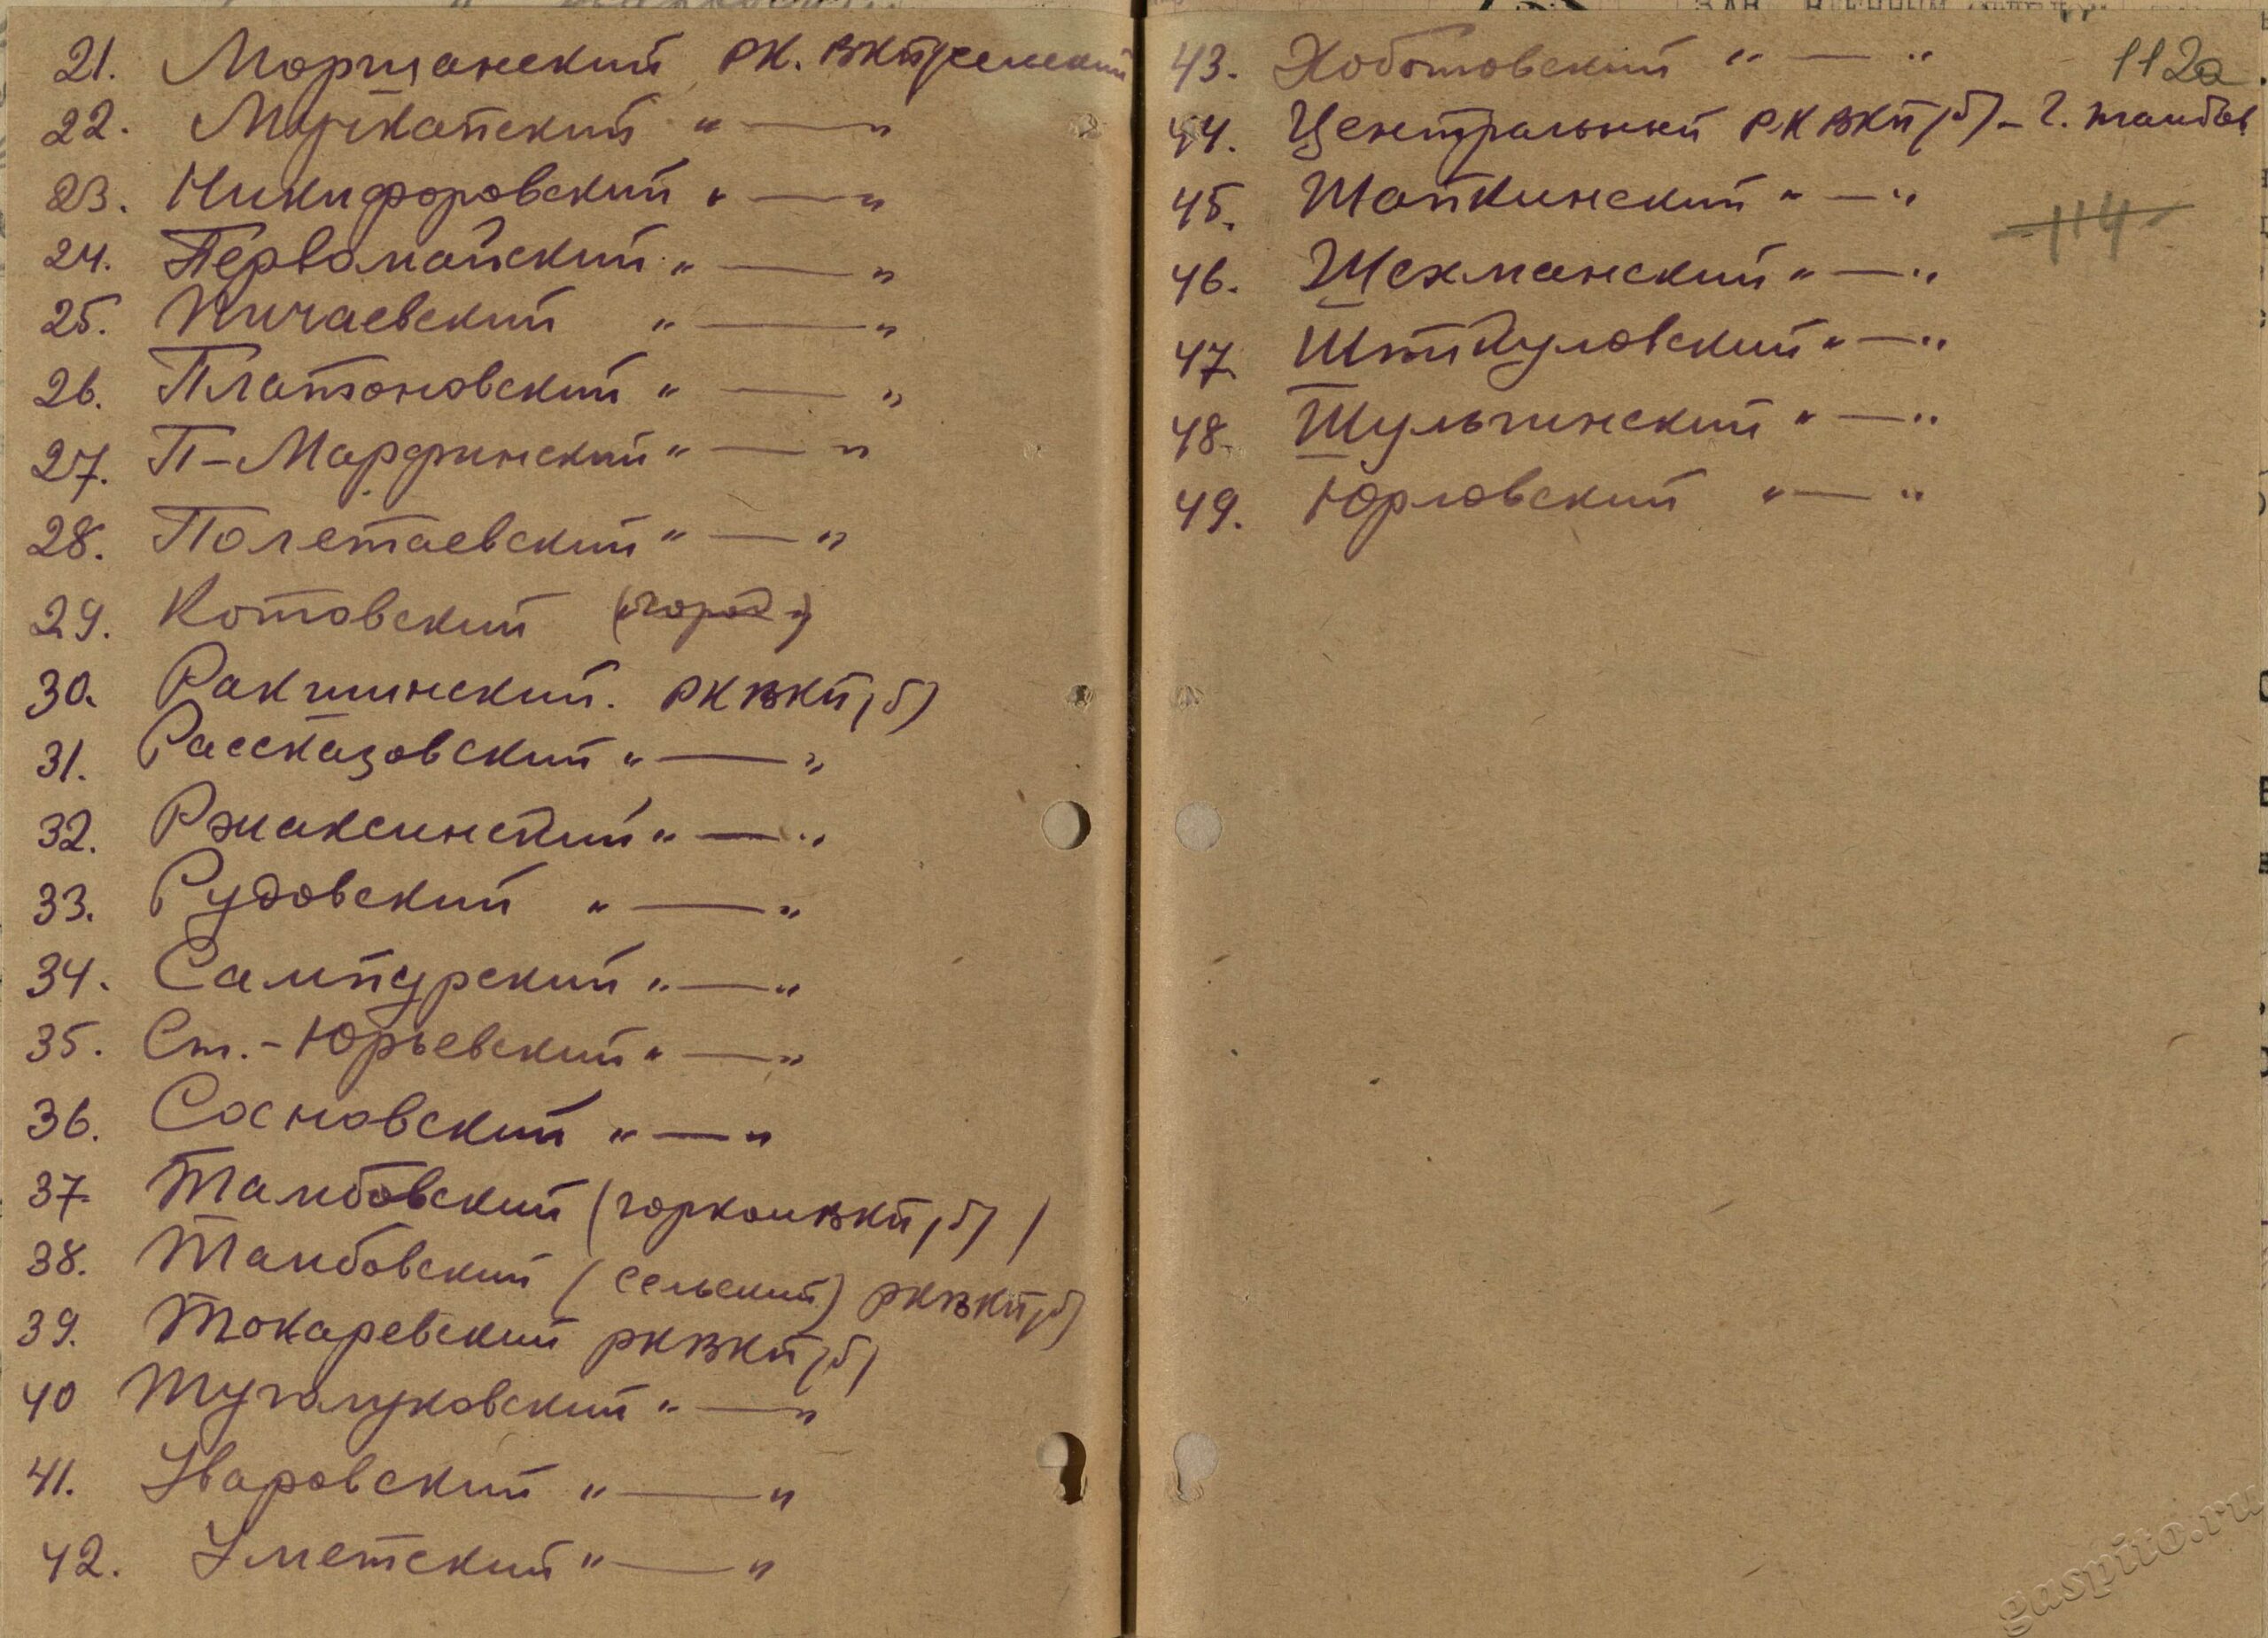 21. Моршанский РК. ВКП(сельский
22. Мучкапский " — "
23. Никифоровский " — "
24. Первомайский " — "
25. Пичаевский " — "
26. Платоновский " — "
27. П-Марфинский " — "
28. Полетаевский " — "
29. Котовский (город)
30. Ракшинский. РК ВКП(б)
31. Рассказовский " — "
32. Ржаксинский " — "
33. Рудовский " — "
34. Сампурский " — "
35. Ст.-Юрьевский " — "
36. Сосновский " — "
37. Тамбовский (горком ВКП(б))
38. Тамбовский (сельский) РК ВКП(б)
39. Токаревский РК ВКП(б)
40 Туголуковский " — "
41. Уваровский " — "
42. Уметский " — "
112а
43. Хоботовский " — "
44. Центральный РК ВКП(б) - г. Тамбов
45. Шапкинский " — "
114
46. Шехманский " — "
47 Шпикуловский " — "
48. Шульгинский " — "
49. Юрловский " — "
gaspito.ru